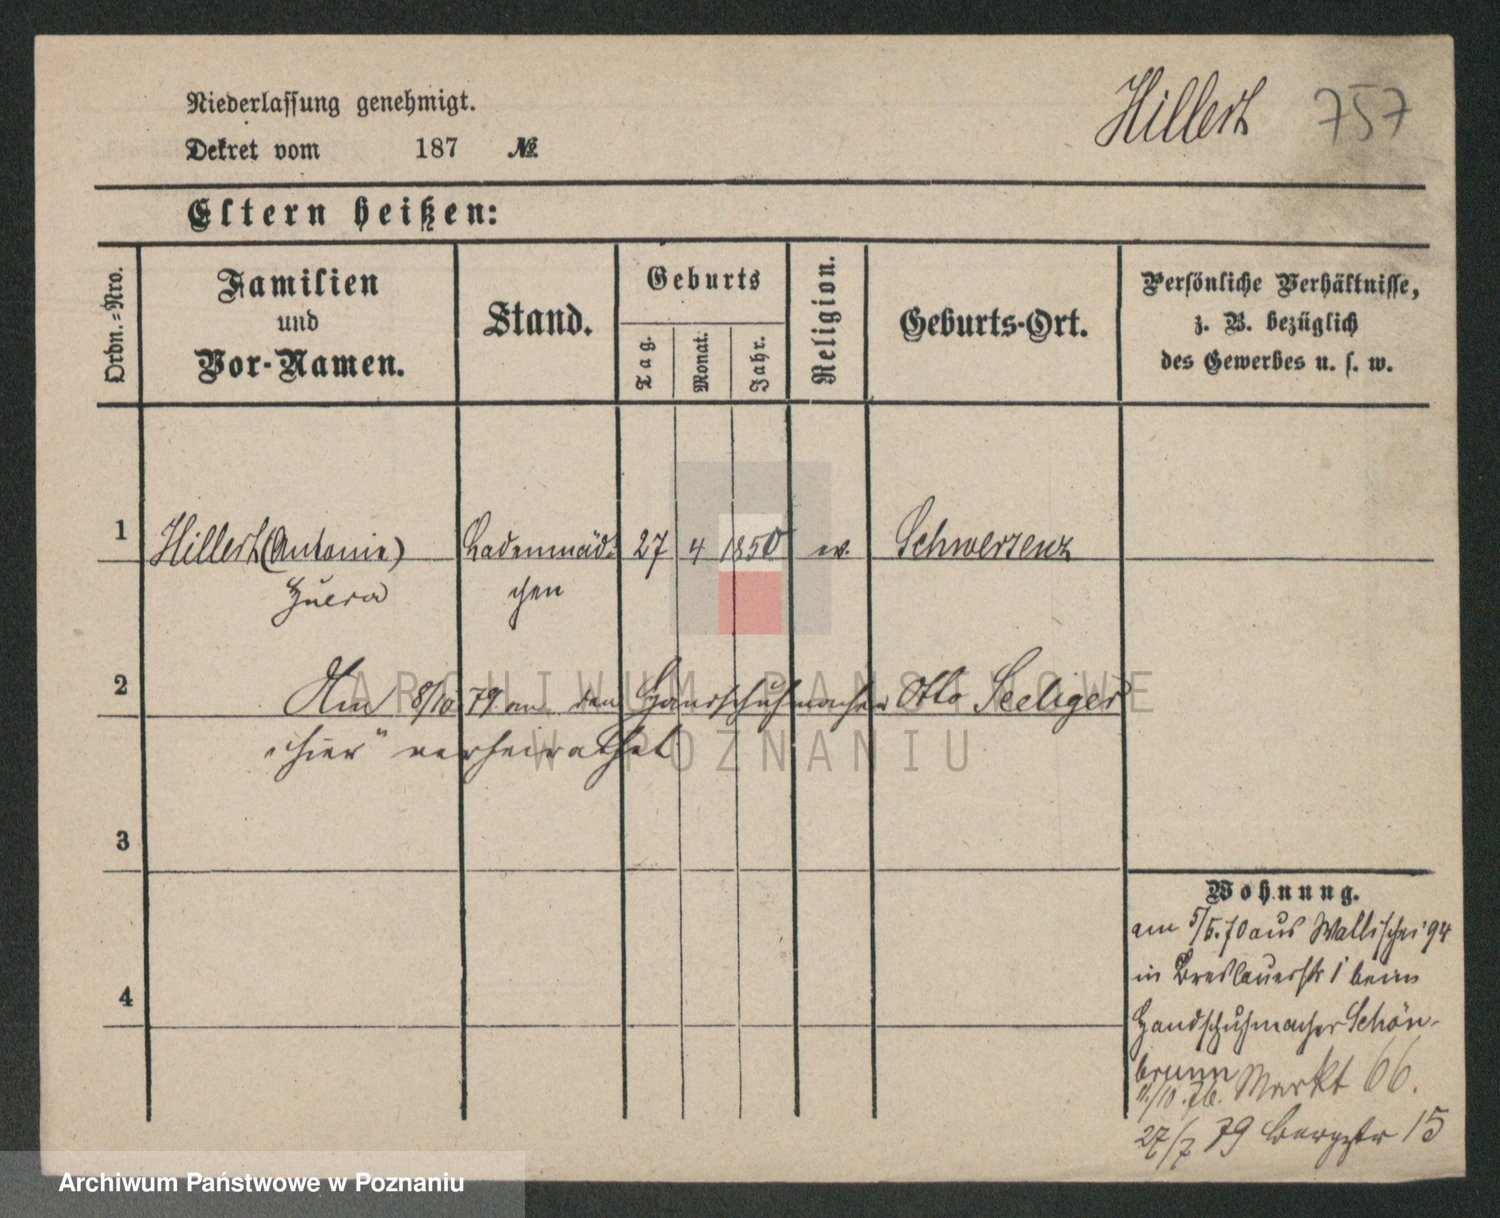 Niederlassung genehmigt.
Dekret vom 187 №
Hillert 757
Eltern heißen:
Ordn.-Nro.
Familien und Vor-Namen.
Stand.
Geburts
Tag.
Monat.
Jahr.
Religion.
Geburts-Ort.
Persönliche Verhältnisse,
z. B. bezüglich
des Gewerbes u. s. w.
1 Hillert (Antonie) Ladenmäd- 27 4 1850 ev. Schwersenz
chen
2 Am 8/10 79 an den Handschuhmacher Otto Seeliger
"hier" verheirathet
3
4
Wohnung.
am 5/5.70 aus Wallischei 94
in Breslauerstr 1 beim
Handschuhmacher Schön-
brunn
11/10.76. Markt 66.
27/7 79 Bergstr 15
ARCHIWUM PAŃSTWOWE
W POZNANIU
Archiwum Państwowe w Poznaniu